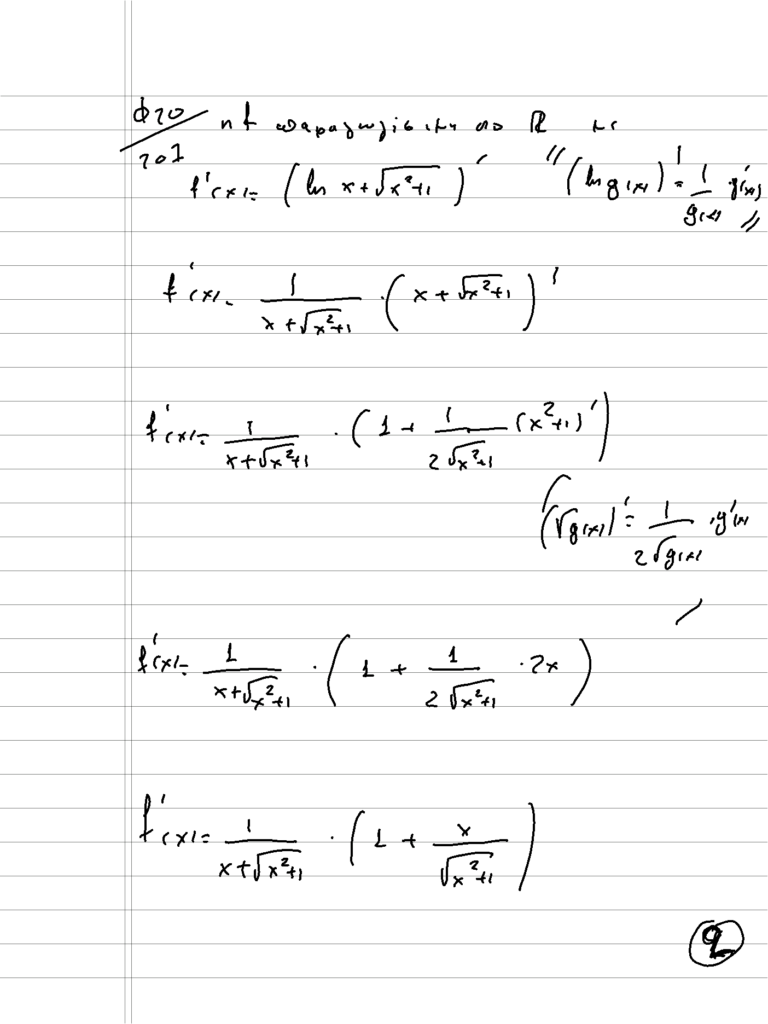 Φ20/201 η f παραγωγίσιμη στο ℝ με
f'(x) = (ln x+√(x²+1))' "(ln g(x))' = 1/g(x) g'(x)"
f'(x) = 1/(x+√(x²+1)) · (x+√(x²+1))'
f'(x) = 1/(x+√(x²+1)) · (1 + 1/(2√(x²+1)) (x²+1)')
(√g(x))' = 1/(2√g(x)) · g'(x)
f'(x) = 1/(x+√(x²+1)) · (1 + 1/(2√(x²+1)) · 2x)
f'(x) = 1/(x+√(x²+1)) · (1 + x/√(x²+1))
2